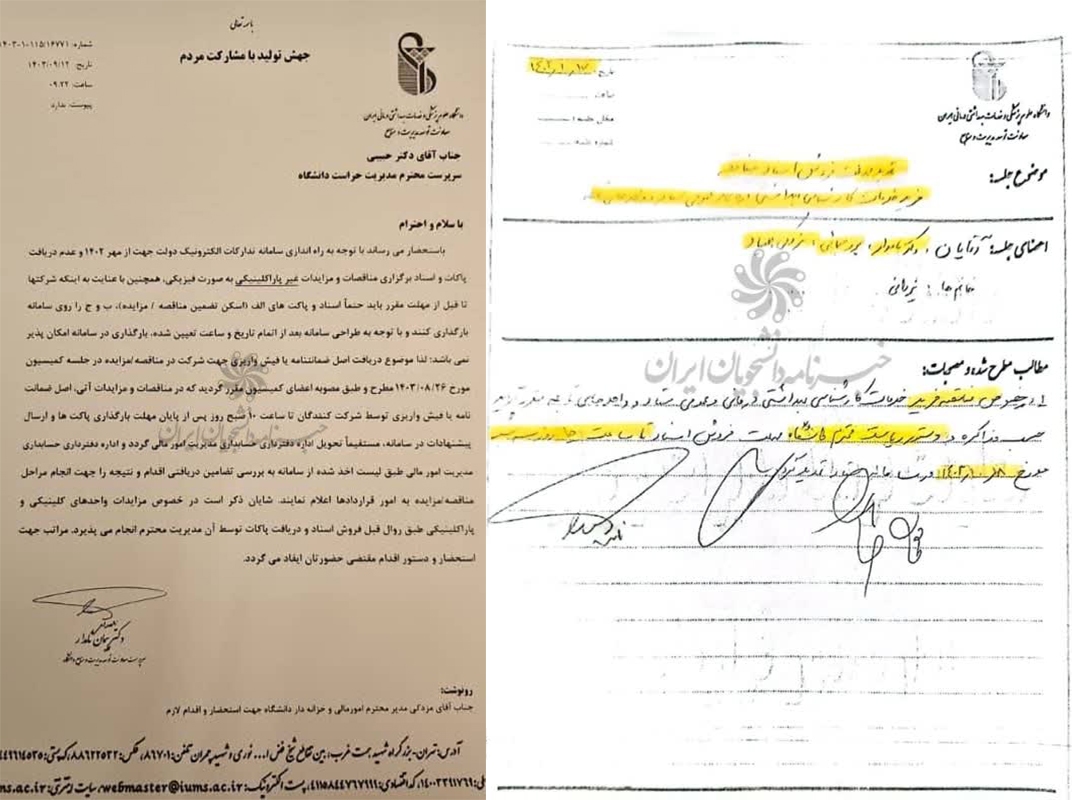 باسمه تعالی
جهش تولید با مشارکت مردم
شماره: ۱۴۰۳-۱-۱۱۵/۱۶۷۷۱
تاریخ: ۱۴۰۳/۰۹/۱۲
ساعت: ۰۹:۲۲
پیوست: ندارد
دانشگاه علوم پزشکی و خدمات بهداشتی درمانی ایران
معاونت توسعه مدیریت و منابع
جناب آقای دکتر حبیبی
سرپرست محترم مدیریت حراست دانشگاه
با سلام و احترام
باستحضار می رساند با توجه به راه اندازی سامانه تدارکات الکترونیک دولت جهت از مهر ۱۴۰۲ و عدم دریافت
پاکات و اسناد برگزاری مناقصات و مزایدات غیر پاراکلینیکی به صورت فیزیکی، همچنین با عنایت به اینکه شرکتها
تا قبل از مهلت مقرر باید حتماً اسناد و پاکت های الف (اسکن تضمین مناقصه / مزایده)، ب و ج را روی سامانه
بارگذاری کنند و با توجه به طراحی سامانه بعد از اتمام تاریخ و ساعت تعیین شده، بارگذاری در سامانه امکان پذیر
نمی باشد؛ لذا موضوع دریافت اصل ضمانتنامه یا فیش واریزی جهت شرکت در مناقصه/مزایده در جلسه کمیسیون
مورخ ۱۴۰۳/۰۸/۲۶ مطرح و طبق مصوبه اعضای کمیسیون مقرر گردید که در مناقصات و مزایدات آتی، اصل ضمانت
نامه یا فیش واریزی توسط شرکت کنندگان تا ساعت ۱۰ صبح روز پس از پایان مهلت بارگذاری پاکت ها و ارسال
پیشنهادات در سامانه، مستقیماً تحویل اداره دفترداری حسابداری مدیریت امور مالی گردد و اداره دفترداری حسابداری
مدیریت امور مالی طبق لیست اخذ شده از سامانه به بررسی تضامین دریافتی اقدام و نتیجه را جهت انجام مراحل
مناقصه/مزایده به امور قراردادها اعلام نمایند. شایان ذکر است در خصوص مزایدات واحدهای کلینیکی و
پاراکلینیکی طبق روال قبل فروش اسناد و دریافت پاکات توسط آن مدیریت محترم انجام می پذیرد. مراتب جهت
استحضار و دستور اقدام مقتضی حضورتان ایفاد می گردد.
دکتر پیمان نامدار
سرپرست معاونت توسعه مدیریت و منابع دانشگاه
رونوشت:
جناب آقای مزدکی مدیر محترم امورمالی و خزانه دار دانشگاه جهت استحضار و اقدام لازم
آدرس: تهران- بزرگراه شهید همت غرب، بین تقاطع شیخ فضل ا... نوری و شهید چمران تلفن: ۸۶۷۰۱، فکس: ۸۸۶۲۲۵۳۳، کد پستی:
کد اقتصادی: ۴۱۱۵۸۴۴۷۶۷۹۱۱، پست الکترونیک: webmaster@iums.ac.ir، سایت اینترنتی:
خبرنامه دانشجویان ایران
دانشگاه علوم پزشکی و خدمات بهداشتی درمانی ایران
معاونت توسعه مدیریت و منابع
تاریخ:
ساعت
محل جلسه:
شماره جلسه:
موضوع جلسه: تمدید مهلت فروش اسناد مناقصه
خرید خدمات کارشناسی بهداشتی درمانی
اعضای جلسه: آقایان: دکتر نامدار،
خانم ها:
خبرنامه دانشجویان ایران
مطالب مطرح شده و مصوبات:
۱- در خصوص مناقصه خرید خدمات کارشناسی بهداشتی درمانی و عمومی ستاد و واحدهای
حسب مذاکره و دستور ریاست محترم دانشگاه مهلت فروش اسناد تا ساعت
مورخ
نامدار